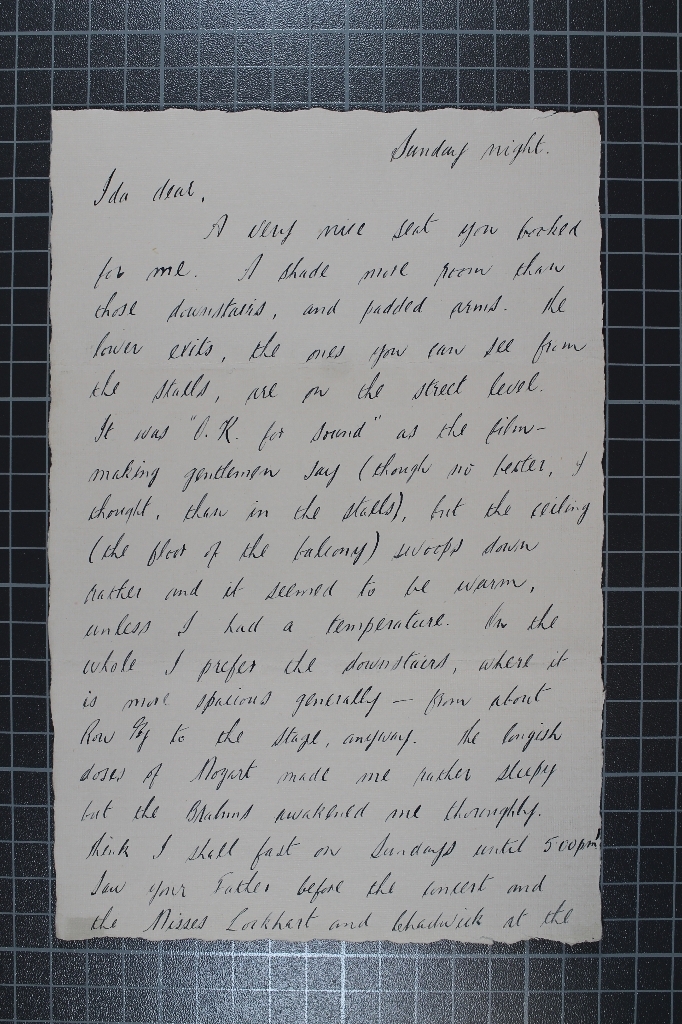 Sunday night.
Ida dear,
A very nice seat you booked
for me. A shade more room than
those downstairs, and padded arms. The
lower exits, the ones you can see from
the stalls, are on the street level.
It was "O.K. for sound" as the film-
making gentlemen say (though no better, I
thought, than in the stalls), but the ceiling
(the floor of the balcony) swoops down
rather and it seemed to be warm,
unless I had a temperature. On the
whole I prefer the downstairs, where it
is more spacious generally — from about
Row to the stage, anyway. The longish
doses of Mozart made me rather sleepy
but the Brahms awakened me thoroughly.
Think I shall fast on Sundays until 5 00pm!
Saw your Father before the concert and
the Misses Lockhart and Chadwick at the